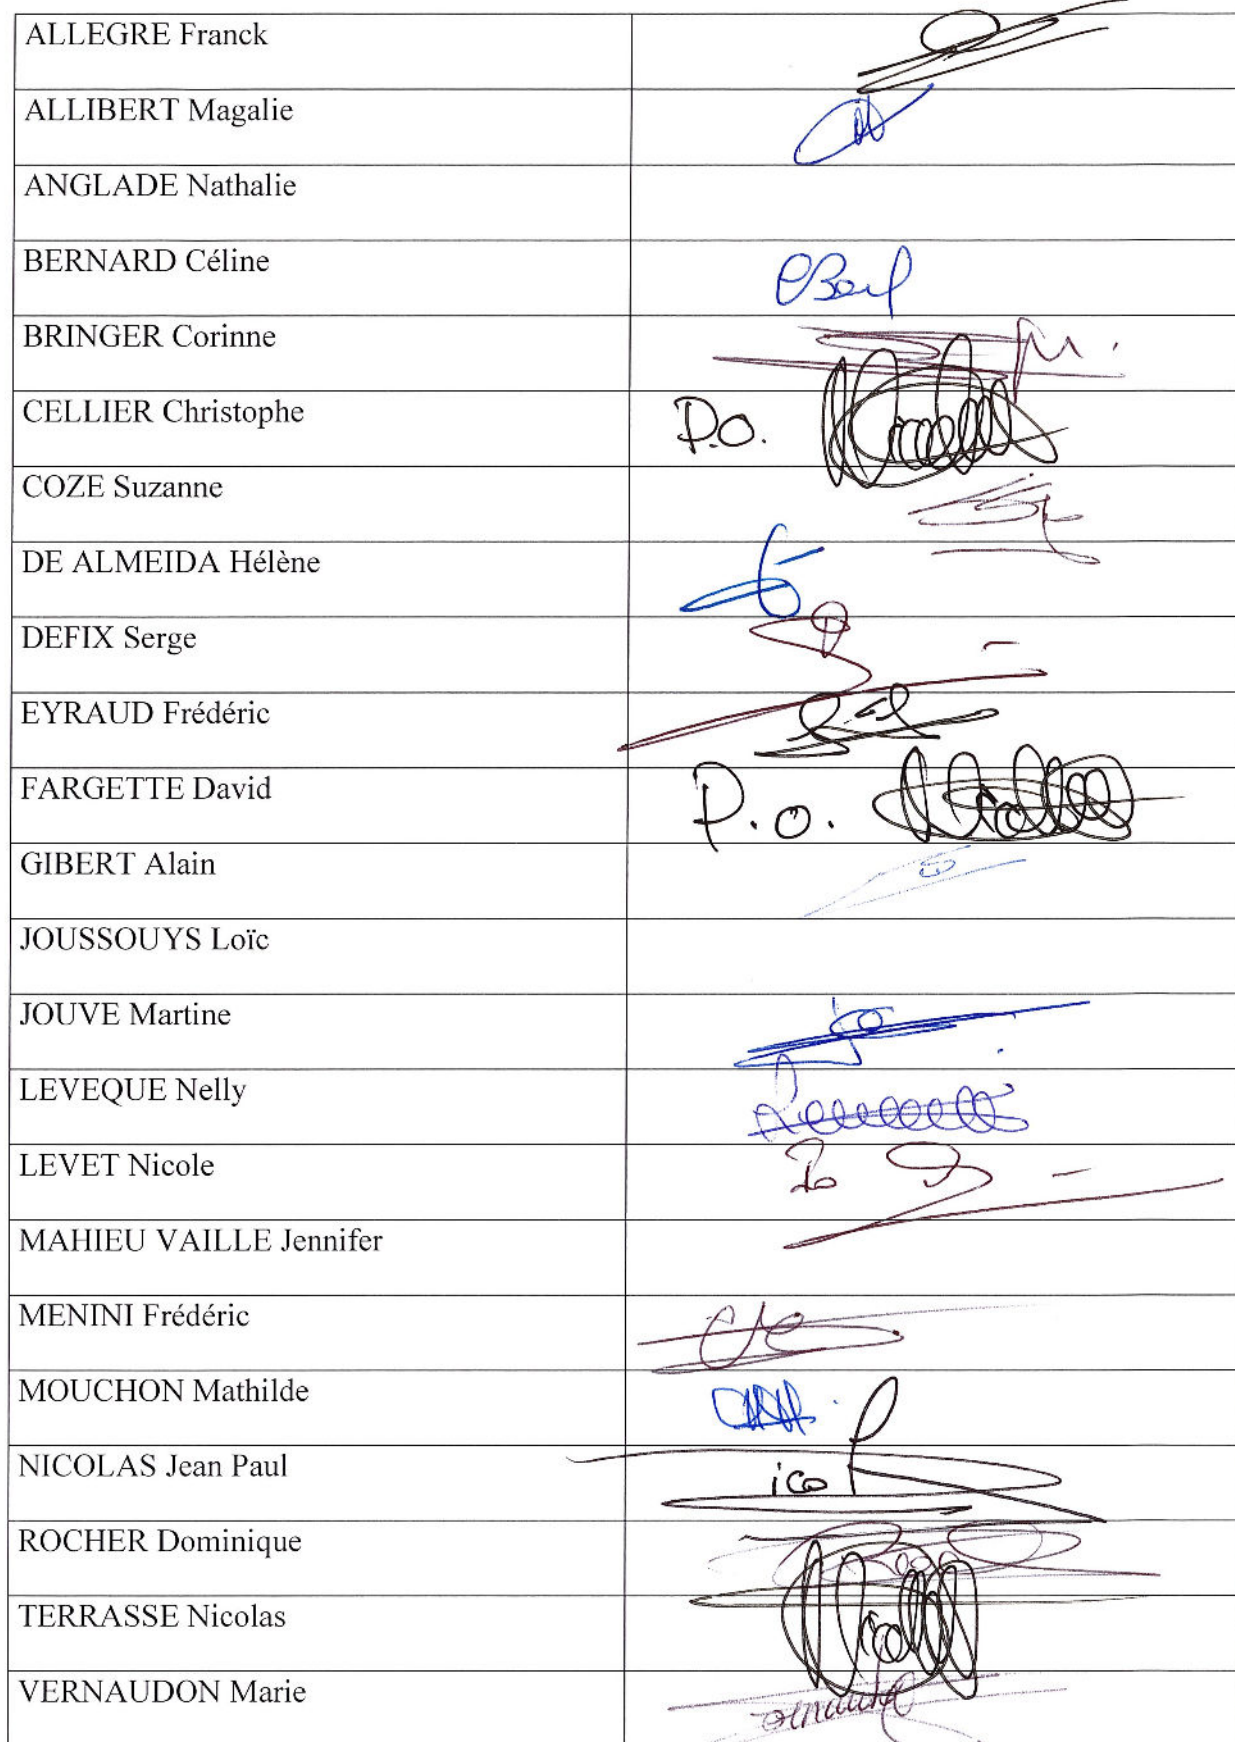 ALLEGRE Franck
ALLIBERT Magalie
ANGLADE Nathalie
BERNARD Céline
BRINGER Corinne
CELLIER Christophe P.O.
COZE Suzanne
DE ALMEIDA Hélène
DEFIX Serge
EYRAUD Frédéric
FARGETTE David P.O.
GIBERT Alain
JOUSSOUYS Loïc
JOUVE Martine
LEVEQUE Nelly
LEVET Nicole
MAHIEU VAILLE Jennifer
MENINI Frédéric
MOUCHON Mathilde
NICOLAS Jean Paul
ROCHER Dominique
TERRASSE Nicolas
VERNAUDON Marie